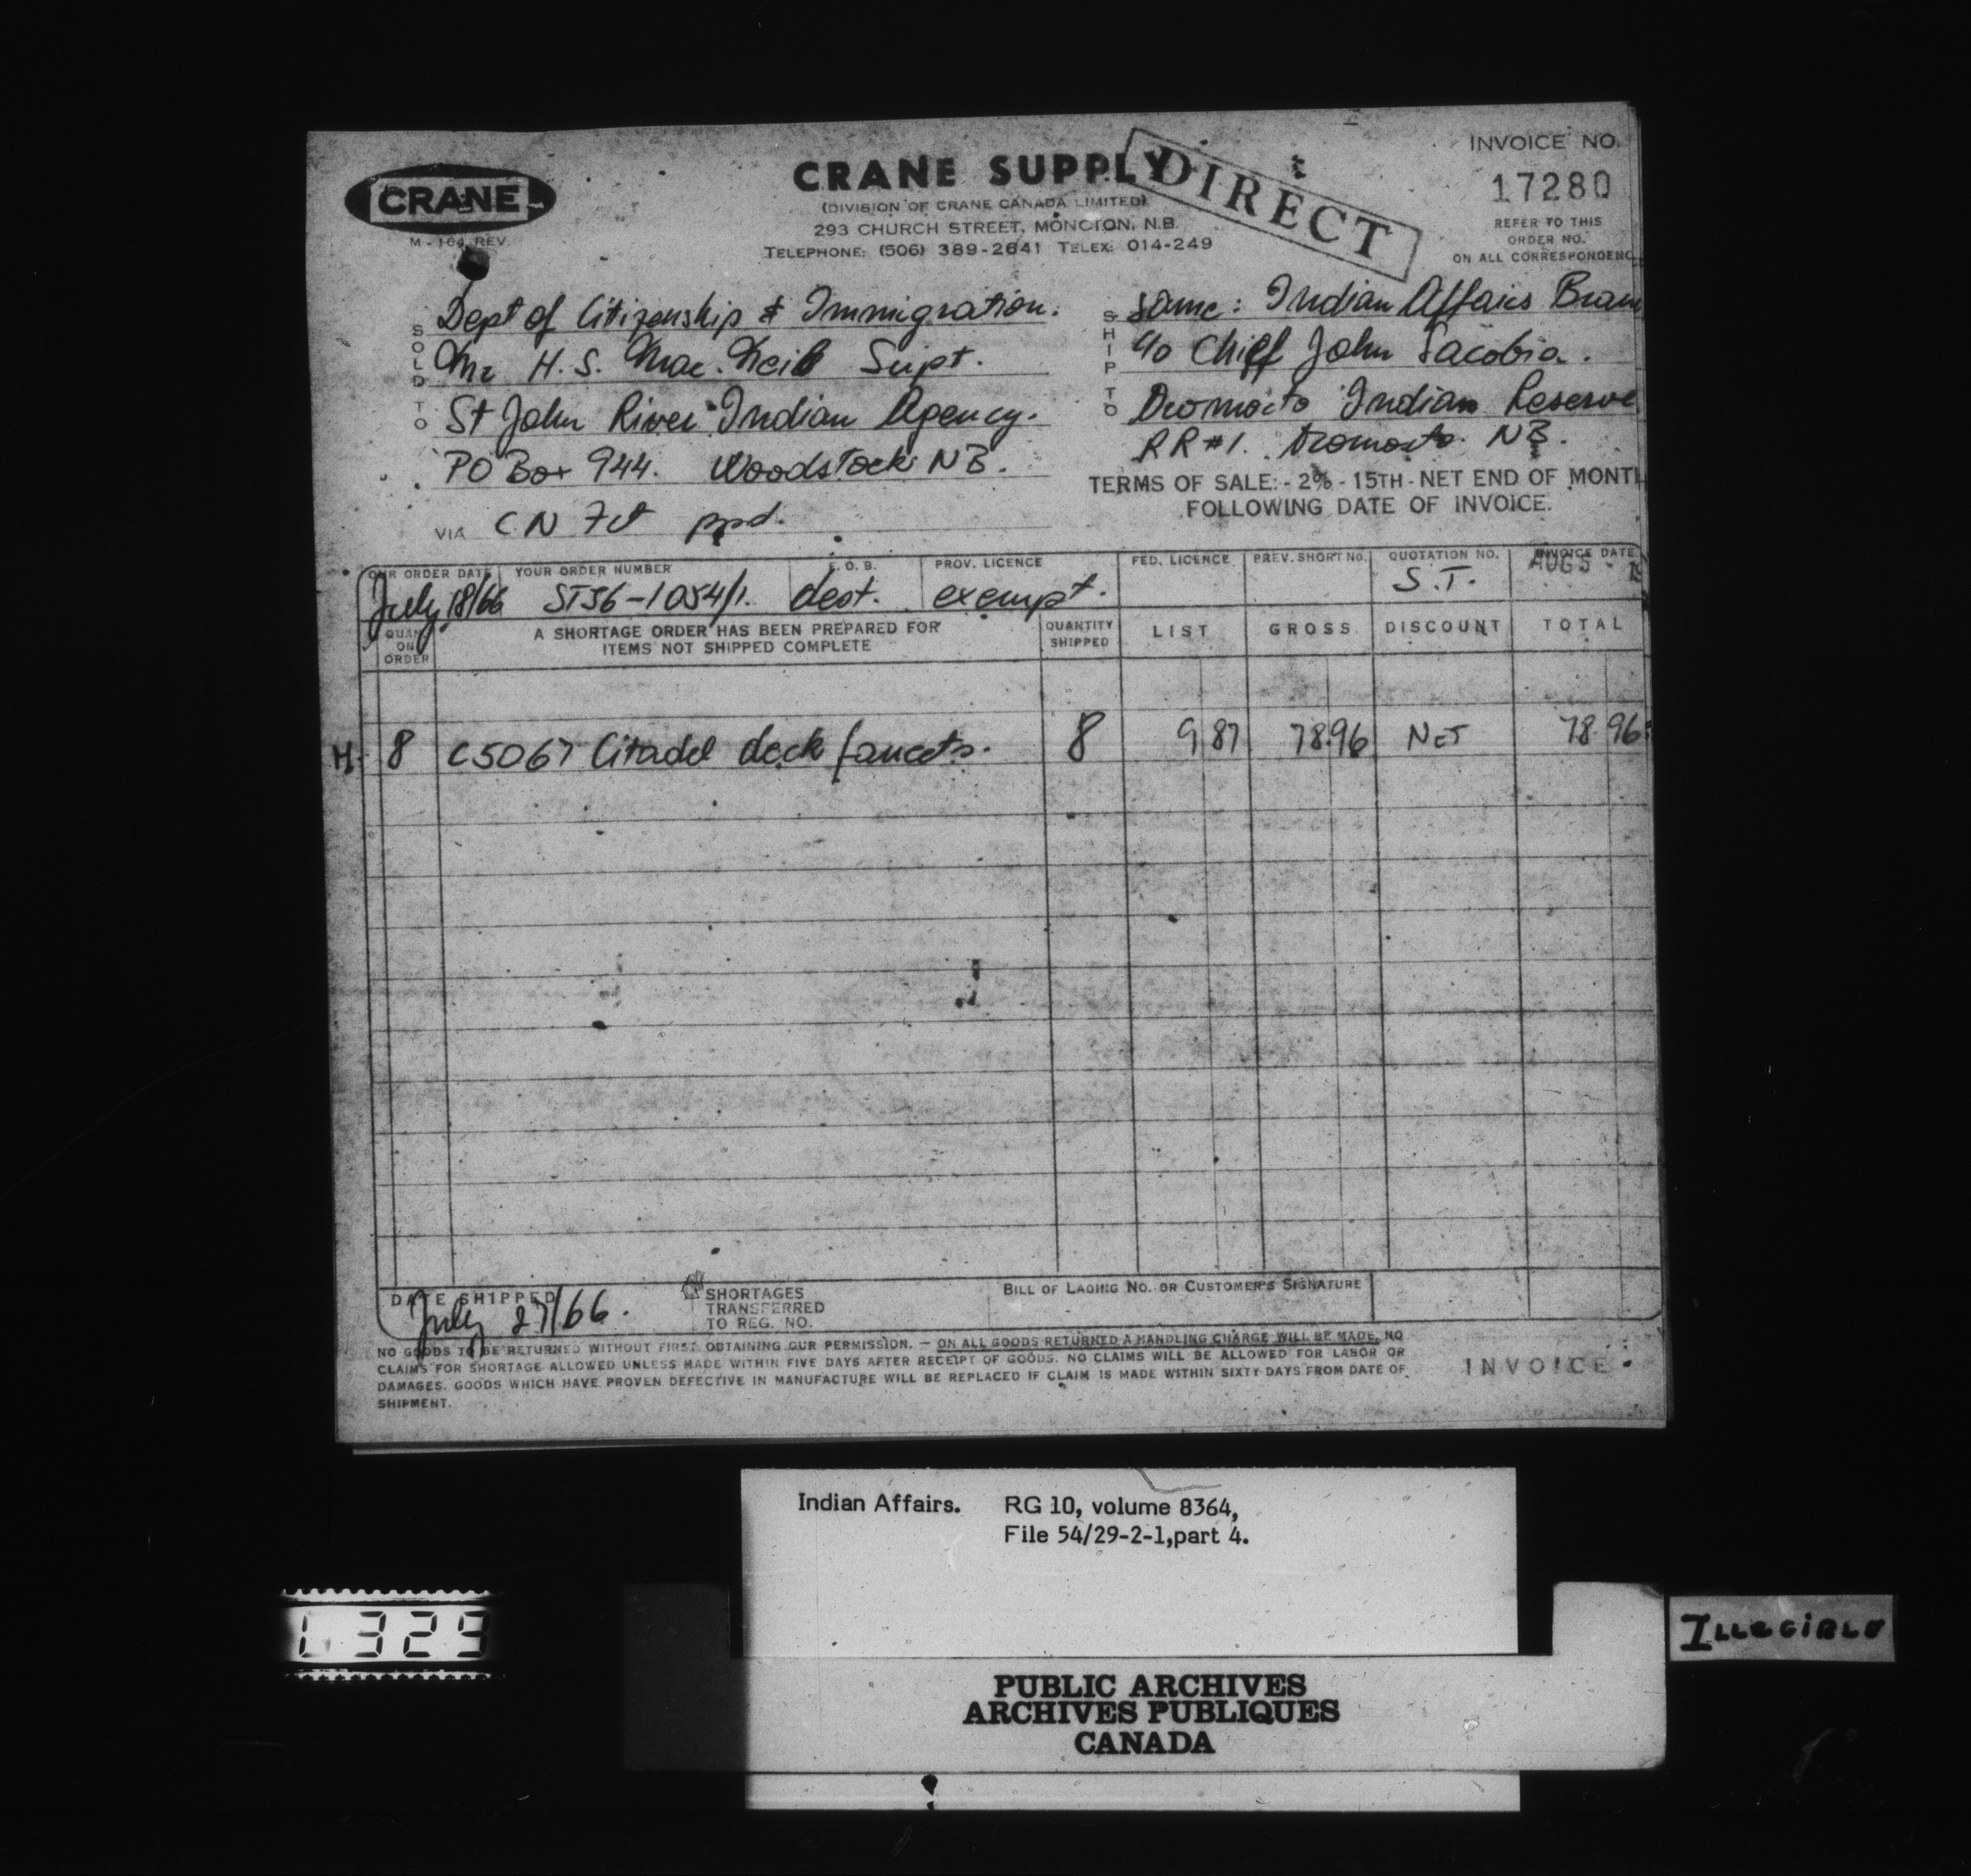 CRANE
M-104 REV.
CRANE SUPPLY
(DIVISION OF CRANE CANADA LIMITED)
293 CHURCH STREET, MONCTON, N.B.
TELEPHONE: (506) 389-2641 TELEX: 014-249
DIRECT
INVOICE NO.
17280
REFER TO THIS
ORDER NO.
ON ALL CORRESPONDENC
SOLD TO
Dept of Citizenship & Immigration.
Mr H.S. Mac.Neil Supt.
St John River Indian Agency.
PO Box 944. Woodstock NB.
VIA CN Fct ppd.
SHIP TO
Same: Indian Affairs Bran
c/o Chief John Sacobia.
Oromocto Indian Reserve
RR#1. Oromocto. NB.
TERMS OF SALE:- 2% - 15TH - NET END OF MONTH
FOLLOWING DATE OF INVOICE.
OUR ORDER DATE YOUR ORDER NUMBER F.O.B. PROV. LICENCE FED. LICENCE PREV. SHORT NO. QUOTATION NO. INVOICE DATE
July 18/66 ST56-1054/1. dest. exempt. S.T. AUG 5
QUAN ON ORDER
A SHORTAGE ORDER HAS BEEN PREPARED FOR
ITEMS NOT SHIPPED COMPLETE
QUANTITY SHIPPED LIST GROSS DISCOUNT TOTAL
H. 8 C5067 Citadel deck faucets. 8 9 87 78.96 NET 78 96
DATE SHIPPED
July 27/66.
SHORTAGES
TRANSFERRED
TO REG. NO.
BILL OF LADING NO. OR CUSTOMER'S SIGNATURE
NO GOODS TO BE RETURNED WITHOUT FIRST OBTAINING OUR PERMISSION. — ON ALL GOODS RETURNED A HANDLING CHARGE WILL BE MADE. NO
CLAIMS FOR SHORTAGE ALLOWED UNLESS MADE WITHIN FIVE DAYS AFTER RECEIPT OF GOODS. NO CLAIMS WILL BE ALLOWED FOR LABOR OR
DAMAGES. GOODS WHICH HAVE PROVEN DEFECTIVE IN MANUFACTURE WILL BE REPLACED IF CLAIM IS MADE WITHIN SIXTY DAYS FROM DATE OF
SHIPMENT.
INVOICE
Indian Affairs. RG 10, volume 8364,
File 54/29-2-1,part 4.
L 329
PUBLIC ARCHIVES
ARCHIVES PUBLIQUES
CANADA
ILLEGIBLE